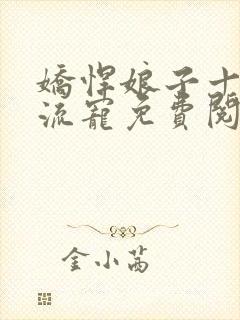 嬌悍娘子十
流寵免費閱
金小茜